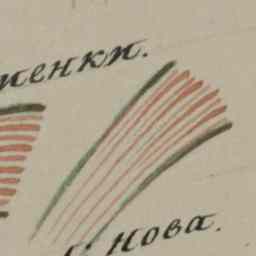 тенки.
нова.